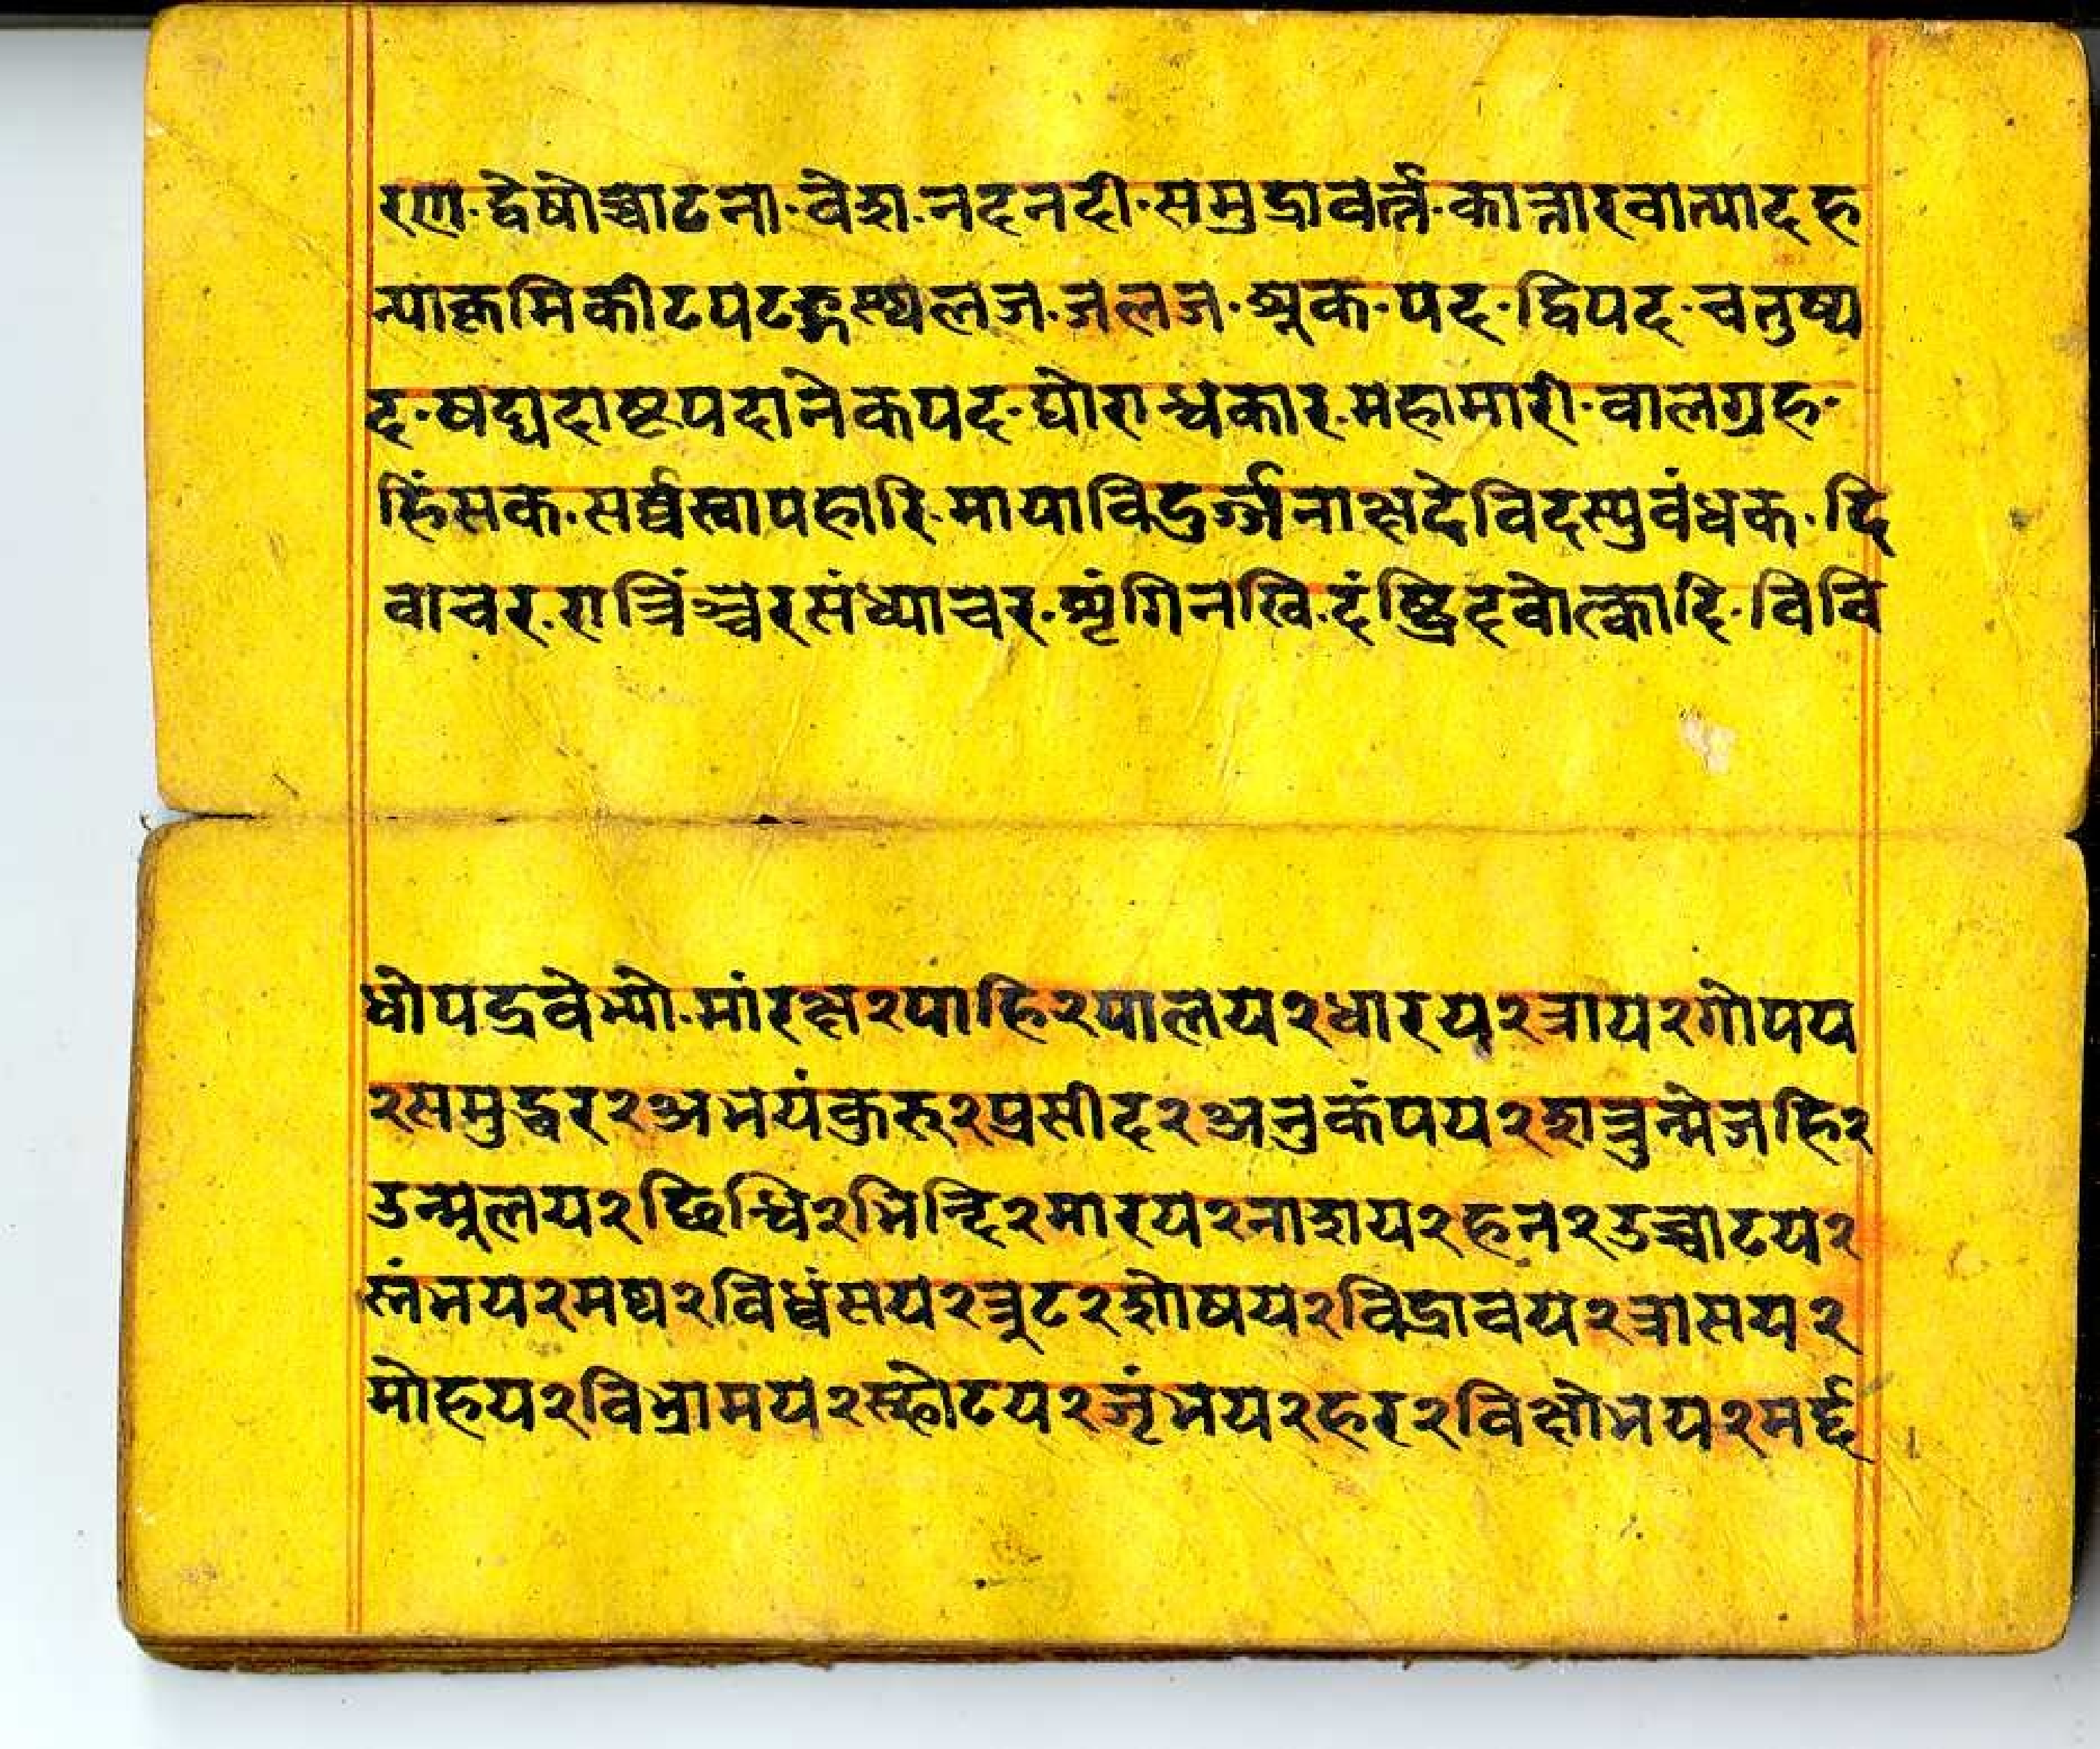 रण·द्वेषोच्चाटना·वेश·नदनदी·समुद्रावर्त्त·कान्तारवात्पादह
त्पाकृमिकीटपटङ्गस्थलज·जलज·भ्रूक·पद·द्विपद·चतुष्प
द·षट्पदाष्टपदानेकपद·घोरान्धकार·महामारी·वालग्रह·
हिंसक·सर्व्वस्वापहारि·मायाविदुर्ज्जनाक्षद्देविदस्युवंधक·दि
वाचर·रात्रिंच्चरसंध्याचर·शृंगिनखि·दंष्ट्रिदवोल्कादि·विवि
धोपद्रवेभ्यो·मांरक्ष२पाहि२पालय२धारय२त्राय२गोपय
२समुद्धर२अभयंकुरु२प्रसीद२अनुकंपय२शत्रुन्मेजहि२
उन्मूलय२छिन्धि२भिन्दि२मारय२नाशय२हन२उच्चाटय२
स्तंभय२मथ२विध्वंसय२त्रुट२शोषय२विद्रावय२त्रासय२
मोहय२विभ्रामय२स्फोटय२जृंभय२हर२विक्षोभय२मर्द्द